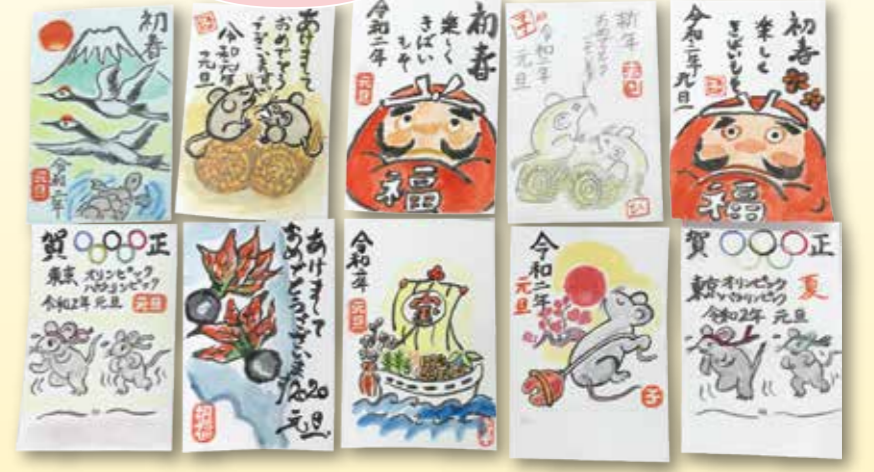 初春
令和二年
元旦
あけまして
おめでとう
ございます
元旦
初春
楽しく
きばい
もそ
令和二年
元旦
福
新年
おめでとう
令和二年
元旦
子
初春
楽しく
きばいもそ
令和二年 元旦
福
賀正
東京 オリンピック
パラリンピック
令和2年 元旦
元旦
あけまして
おめでとうございます
2020
元旦
令和二年
元旦
宝
令和二年
元旦
子
賀正
東京オリンピック
パラリンピック
夏
令和2年 元旦